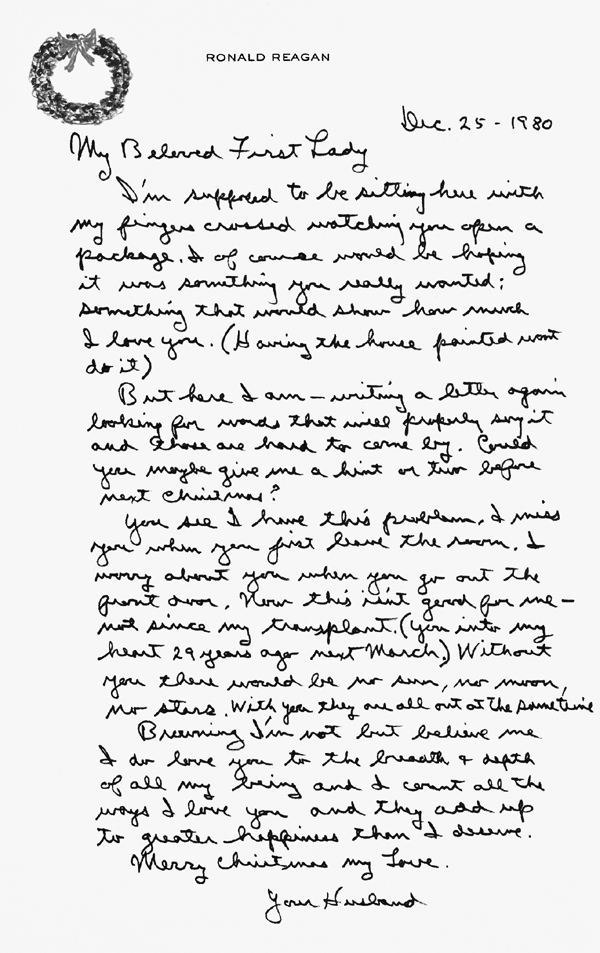 RONALD REAGAN
Dec. 25 - 1980
My Beloved First Lady
I'm supposed to be sitting here with
my fingers crossed watching you open a
package. I of course would be hoping
it was something you really wanted;
something that would show how much
I love you. (Having the house painted wont
do it)
But here I am – writing a letter again
looking for words that will properly say it
and those are hard to come by. Could
you maybe give me a hint or two before
next Christmas?
You see I have this problem. I miss
you when you first leave the room. I
worry about you when you go out the
front door. Now this isn't good for me –
not since my transplant. (You into my
heart 29 years ago next March.) Without
you there would be no sun, no moon,
no stars. With you they are all out at the same time
Browning I'm not but believe me
I do love you to the breadth & depth
of all my being and I count all the
ways I love you and they add up
to greater happiness than I deserve.
Merry Christmas my Love.
Your Husband